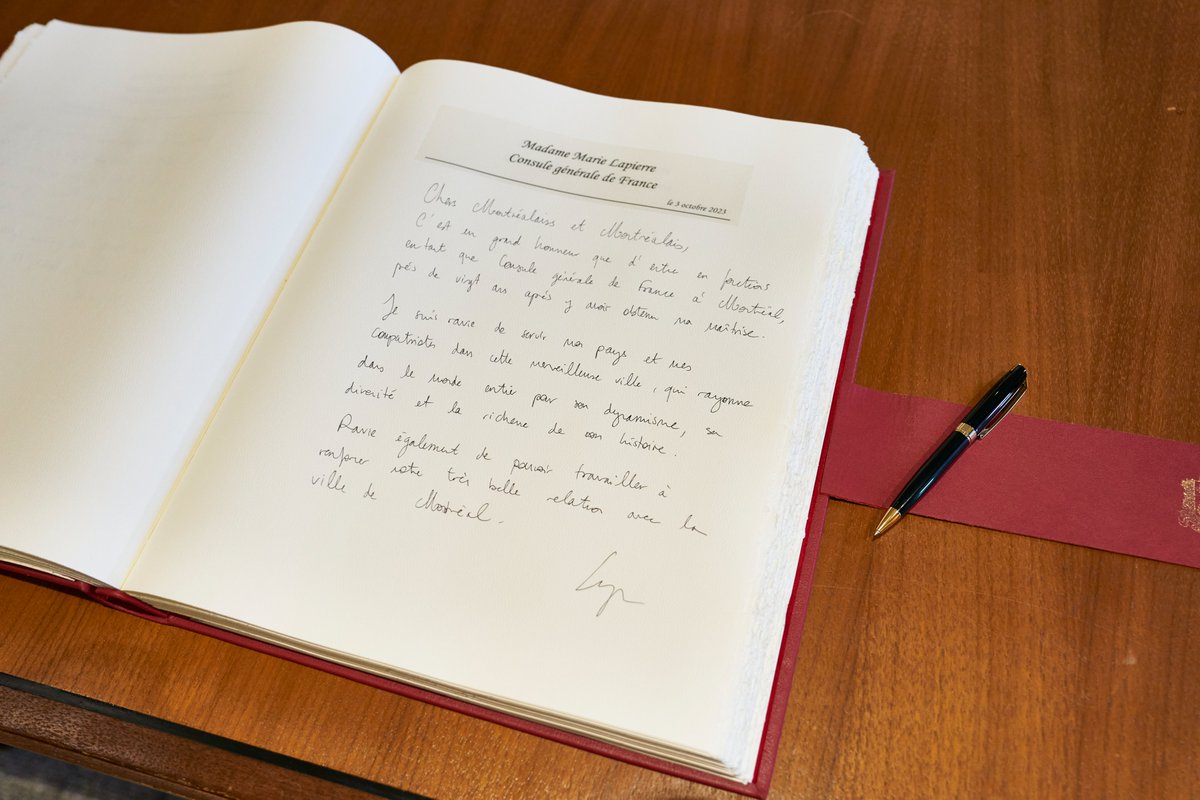 Madame Marie Lapierre
Consule générale de France
le 3 octobre 2023
Chers Montréalaises et Montréalais,
C'est un grand honneur que d'entrer en fonctions
en tant que Consule générale de France à Montréal,
près de vingt ans après y avoir obtenu ma maîtrise.
Je suis ravie de servir mon pays et mes
compatriotes dans cette merveilleuse ville, qui rayonne
dans le monde entier par son dynamisme, sa
diversité et la richesse de son histoire.
Ravie également de pouvoir travailler à
renforcer notre très belle relation avec la
ville de Montréal.